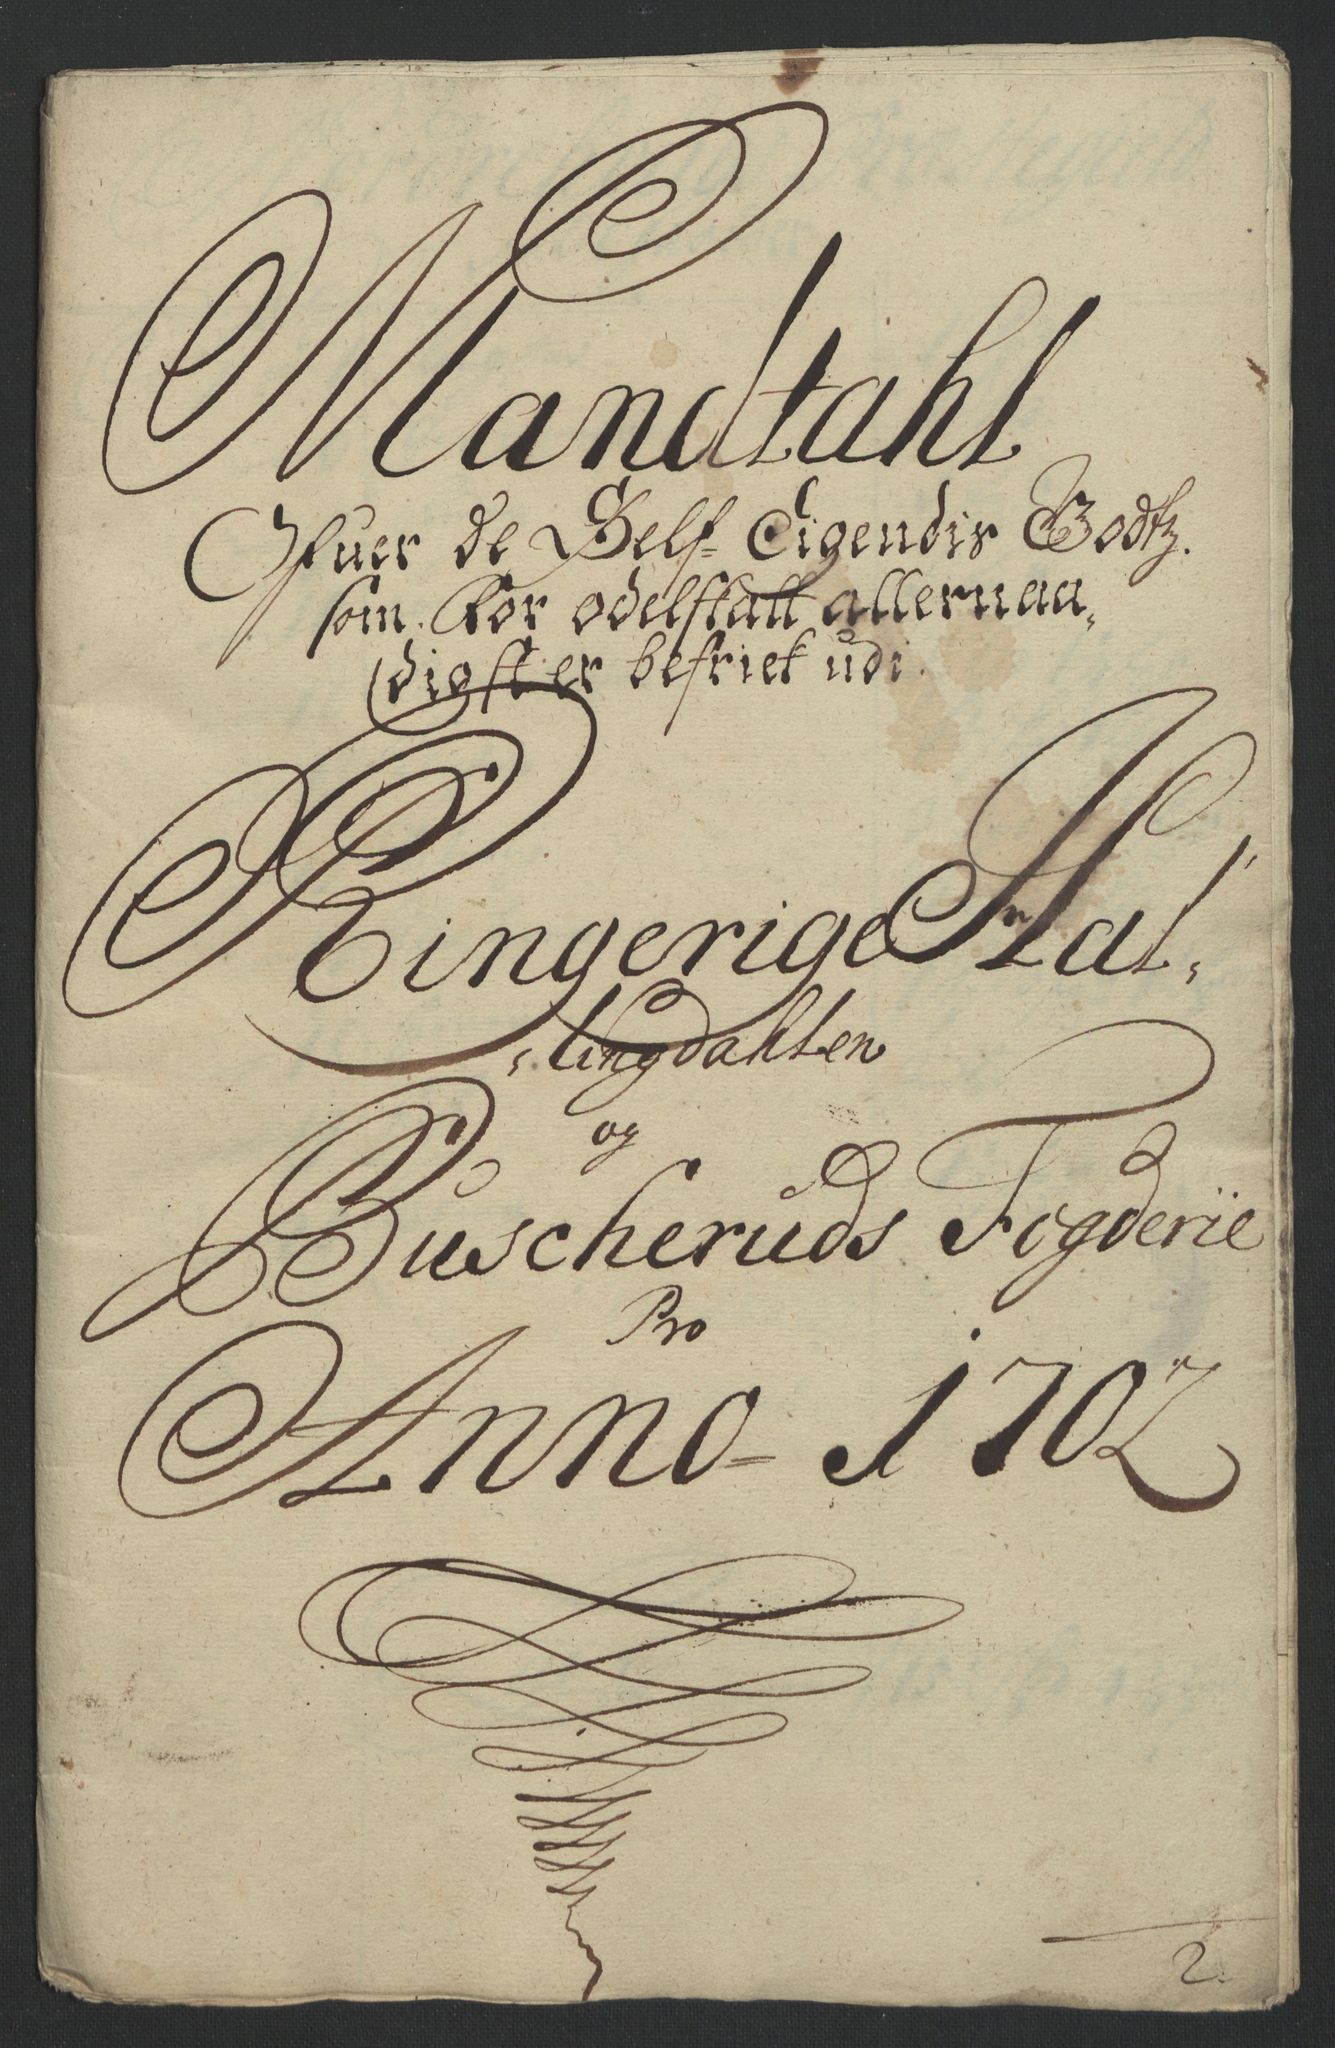 Mandtahl
Ofuer de Self-Eigendis Godtz.
som. for odelskatt allernaa„
digst er befriet udi.
Ringerige Hal„
„lingdahlen
og
Buscheruds Fogderie
Pro
Anno - 1702
2.